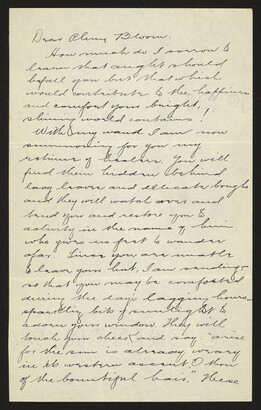 Dear Plum Bloom:
How much do I sorrow to
learn that aught should
befall you but that which
would contribute to the happiness
and comfort your bright,
shining world contains!
With my wand I am now
summoning for you my
retinue of healers. You will
find them hidden behind
lacy leaves and delicate boughs
and they will watch over and
tend you and restore you to
activity in the name of him
who gives us feet to wander
afar. Since you are unable
to leave your hut, I am sending
so that you may be comforted
during the day's lagging hours
sparkling bits of sunlight to
adorn your window. They will
touch your cheek and say "arise
for the sun is already weary
in its western ascent O thou
of the bountiful hair." These